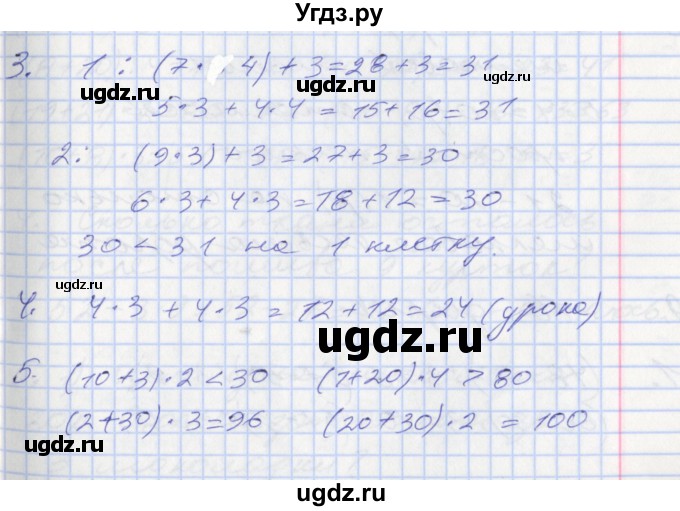 Угдз.ру
3. 1: (7·4)+3=28+3=31
ugdz.ru ugdz.ru ugdz.ru
5·3+4·4=15+16=31
2: (9·3)+3=27+3=30
ugdz.ru
6·3+4·3=18+12=30
30<31 на 1 клетку.
ugdz.ru ugdz.ru
4. 4·3+4·3=12+12=24 (урока)
ugdz.ru
5. (10+3)·2<30 (1+20)·4>80
(2+30)·3=96 (20+30)·2=100
ugdz.ru ugdz.ru
ugdz.ru